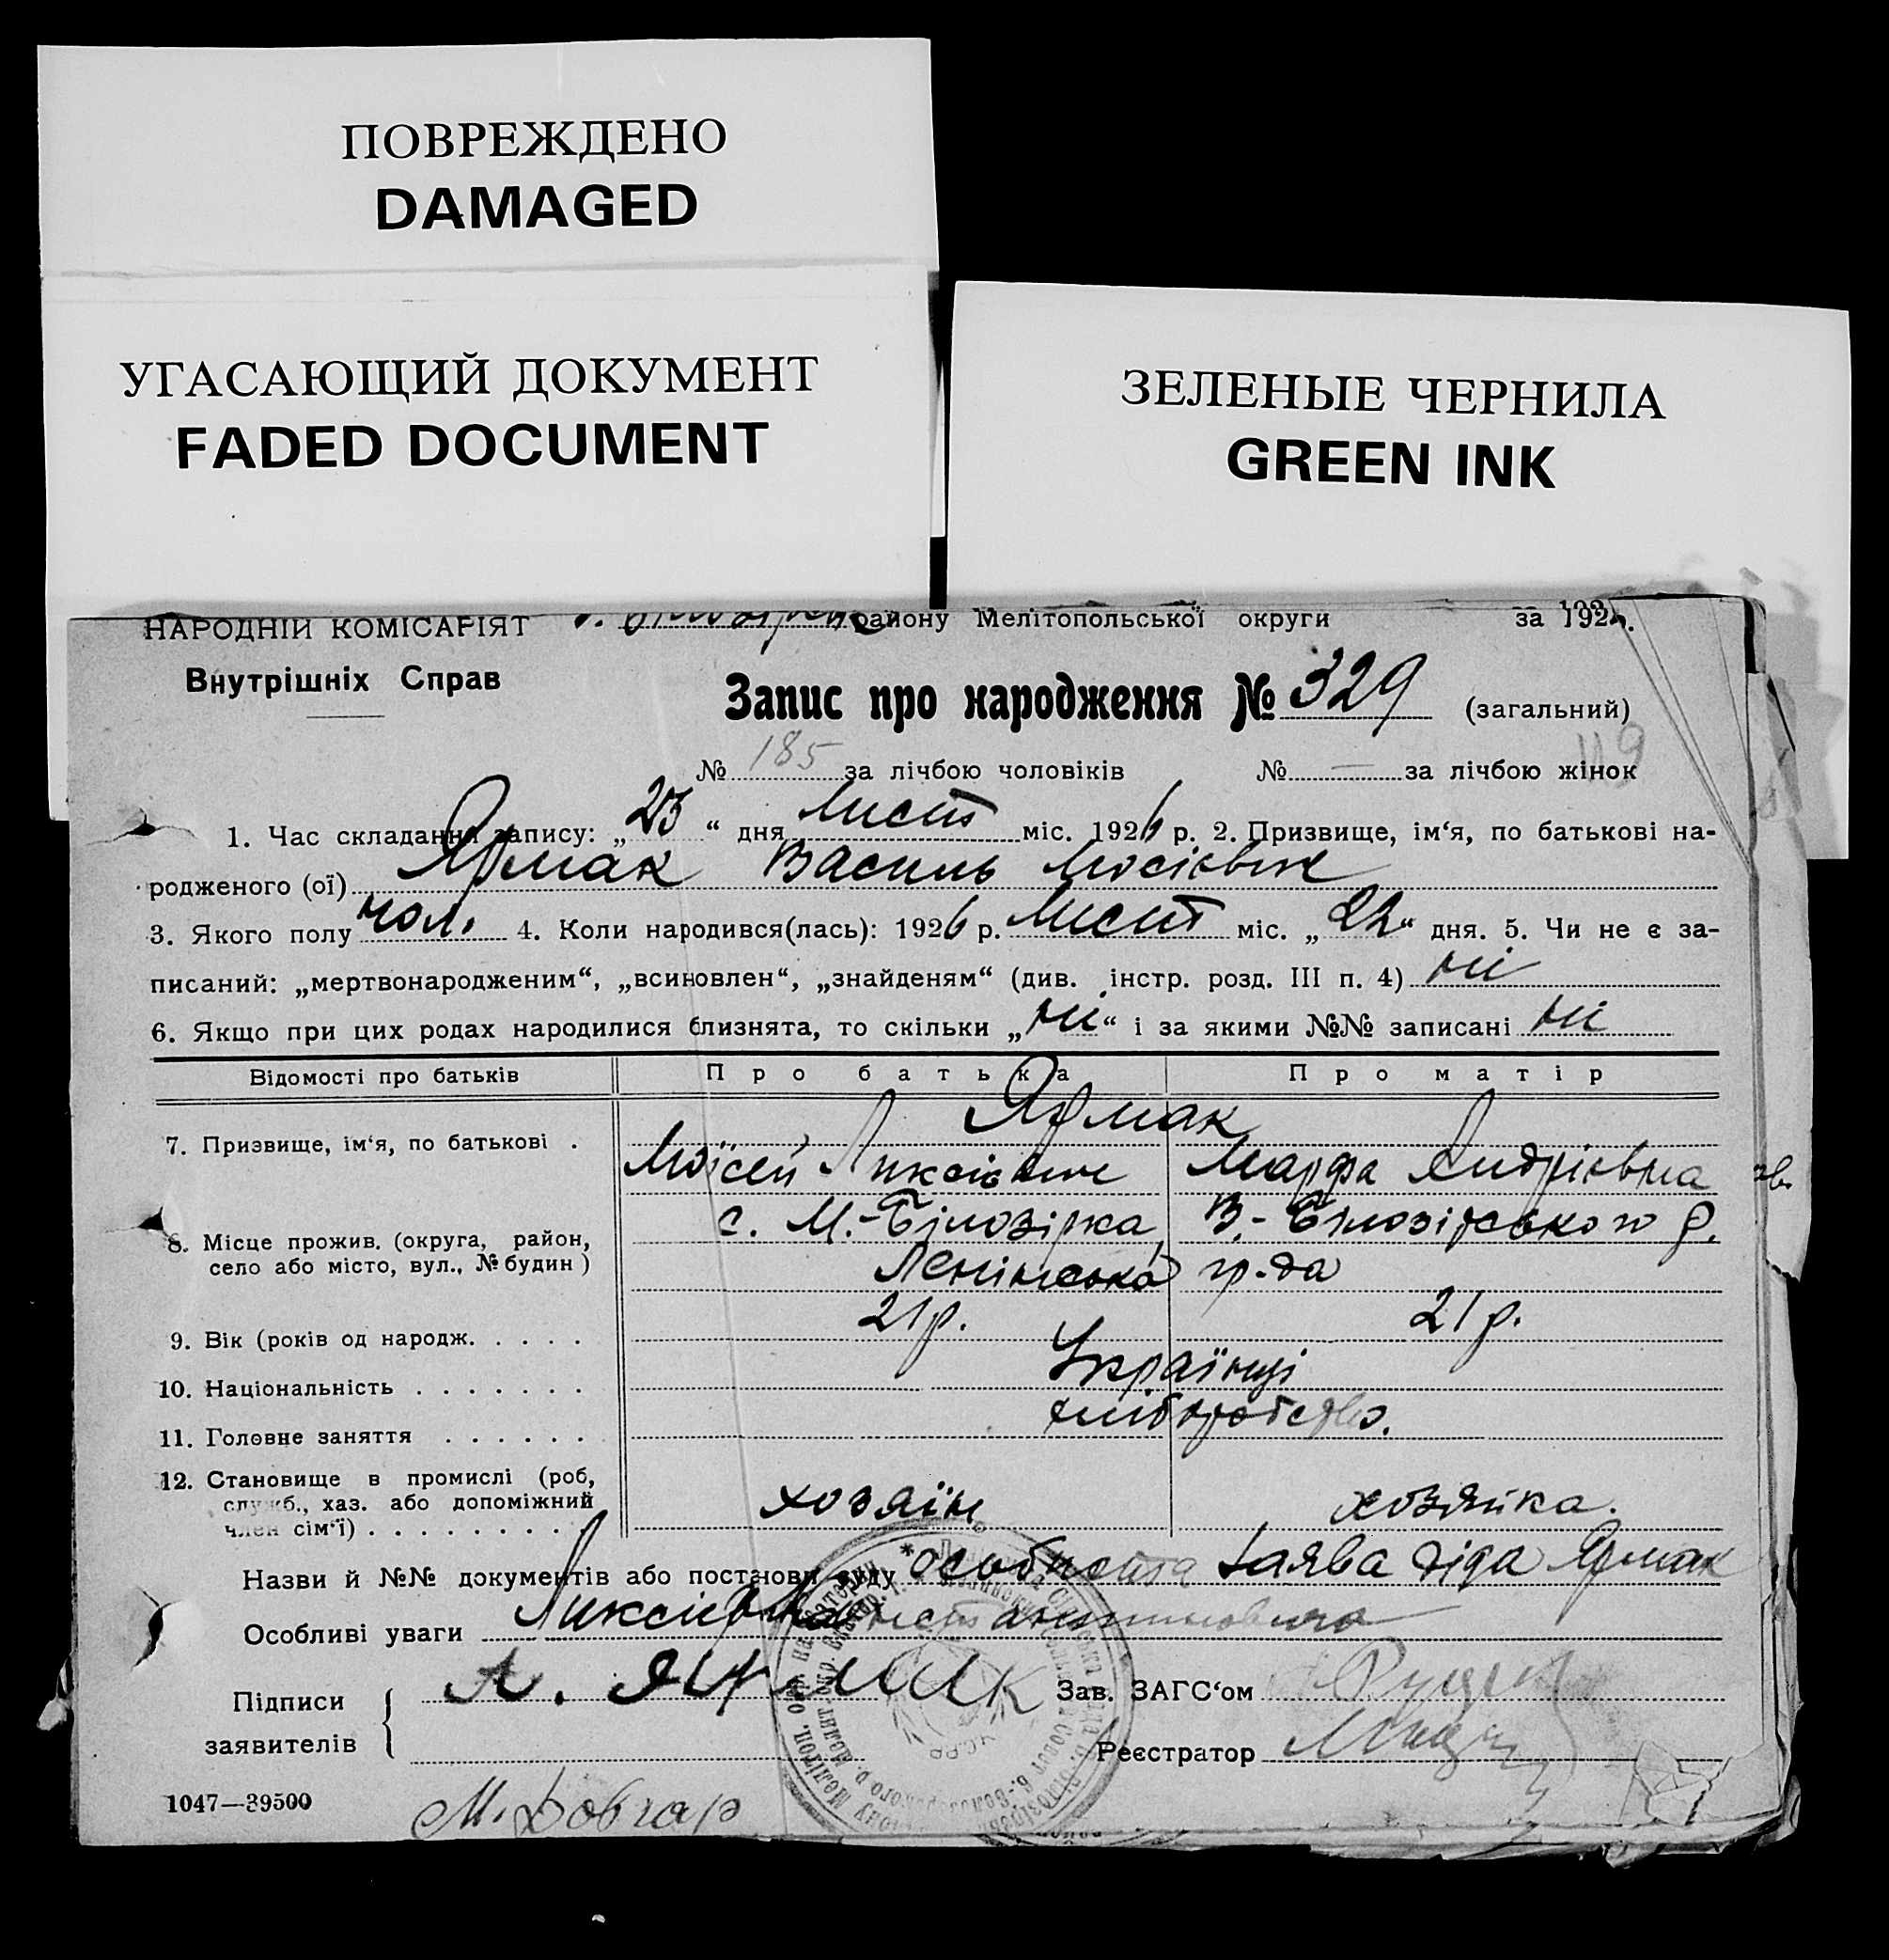 ПОВРЕЖДЕНО
DAMAGED
УГАСАЮЩИЙ ДОКУМЕНТ
FADED DOCUMENT
ЗЕЛЕНЫЕ ЧЕРНИЛА
GREEN INK
НАРОДНІЙ КОМІСАРІЯТ району Мелітопольської округи за 192
Внутрішніх Справ
Запис про народження № 329 (загальний)
119
№ 185 за лічбою чоловіків № — за лічбою жінок
1. Час складання запису: „23“ дня Лист міс. 1926 р. 2. Призвище, ім‘я, по батькові на-
родженого (ої) Ярмак Василь Мосієвич
3. Якого полу чол. 4. Коли народився(лась): 1926 р. Лист міс. „22“ дня. 5. Чи не є за-
писаний: „мертвонародженим“, „всиновлен“, „знайденям“ (див. інстр. розд. III п. 4) ні
6. Якщо при цих родах народилися близнята, то скільки „ні“ і за якими №№ записані ні
Відомості про батьків Про батька Про матір
Ярмак
7. Призвище, ім‘я, по батькові . Моїсей Ликсієвич Марфа Андрієвна
с. М.-Білозірка, В.-Білозірського р.
8. Місце прожив. (округа, район,
село або місто, вул., № будин ) Ленінська гр-да
9. Вік (років од народж. . . . . 21р. 21р.
10. Національність . . . . . . . Українці
11. Головне заняття . . . . . . хліборобство.
12. Становище в промислі (роб,
служб., хаз. або допоміжний хозяїн хозяйка.
член сім‘ї) . . . . . . . . .
Назви й №№ документів або постанови суду особиста заява діда Ярмак
Особливі уваги Ликсія
Підписи Л. Ярмак Зав. ЗАГС‘ом
заявителів Реєстратор
1047—39500 М. Довгар